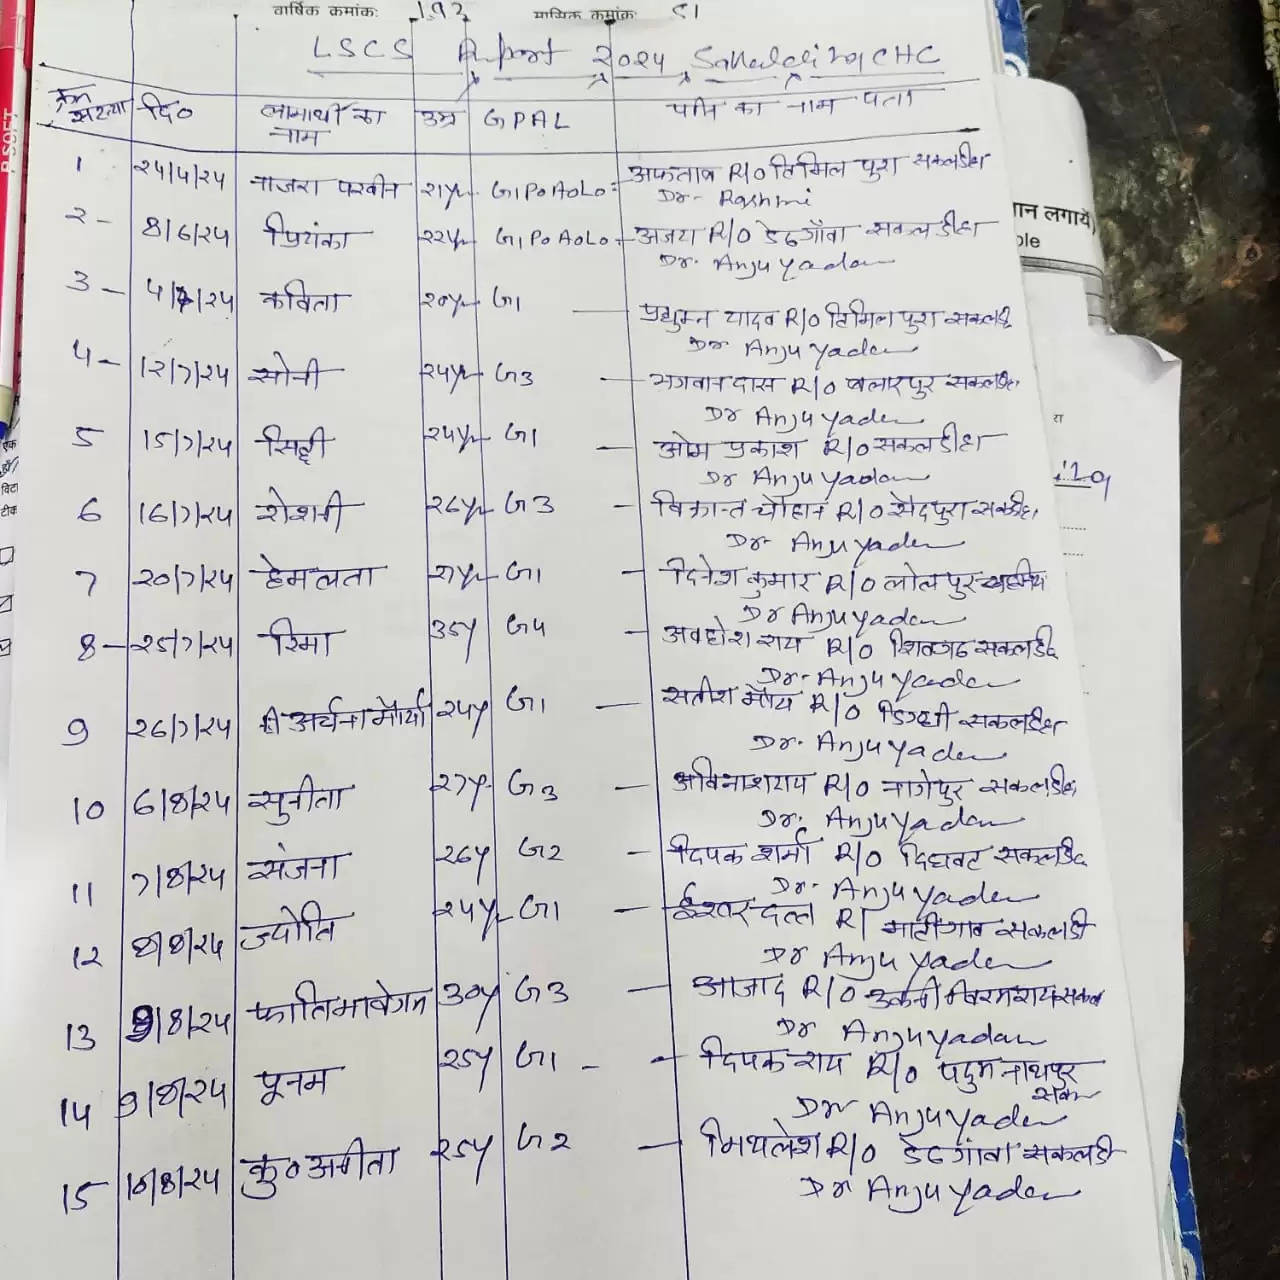 वार्षिक क्रमांक: 192 मासिक क्रमांक 51
LSCS Report 2024 Sakaldiha CHC
क्रम संख्या दि० लाभार्थी का नाम उम्र GPAL पति का नाम पता
1 24/4/24 नाजरा परवीन 21yr G1P0A0L0 - अफताब R/O तिमिल पुरा सकलडीहा
Dr- Rashmi
2- 8/6/24 प्रियंका 22yr G1P0A0L0 - अजय R/O डेढगाँवा सकलडीहा
Dr. Anju Yadav
3- 4/7/24 कविता 20yr G1 — प्रद्युम्न यादव R/O तिमिल पुरा सकलडी
Dr Anju Yadav
4- 12/7/24 सोनी 24yr G3 — भगवानदास R/O बलारपुर सकलडीहा
Dr Anju Yadav
5 15/7/24 सिद्दी 24yr G1 — ओम प्रकाश R/O सकलडीहा
Dr Anju Yadav
6 16/7/24 रोशनी 26yr G3 - विक्रान्त चौहान R/O सैदपुरा
Dr- Anju Yadav
7 20/7/24 हेमलता 21yr G1 - दिनेश कुमार R/O लोलपुर
Dr Anju Yadav
8- 25/7/24 रिमा 35y G4 - अवधेश राय R/O शिवगढ सकलडीह
Dr- Anju Yadav
9 26/7/24 अर्चना मौर्या 24y G1 — सतीश मौर्य R/O सकलडीहा
Dr. Anju Yadav
10 6/8/24 सुनीता 27y G3 — अविनाश राय R/O नागेपुर सकलडीहा
Dr. Anju Yadav
11 7/8/24 संजना 26y G2 — दिपक शर्मा R/O दिघवट सकलडीह
Dr- Anju Yadav
12 8/8/24 ज्योति 24yr G1 — ईश्वर दत्त R/ सकलडी
Dr Anju Yadav
13 9/8/24 फातिमा बेगम 30y G3 — आजाद R/O
Dr Anju Yadav
14 9/8/24 पूनम 25y G1 - - दिपक राय R/O पदुमनाथपुर
सक
Dr Anju Yadav
15 10/8/24 कु० अनीता 25y G2 — मिथलेश R/O डेढगांवा सकलडी
Dr Anju Yadav
P.SOFT
ान लगायें)
ple
रा
एक
विटा
टीक